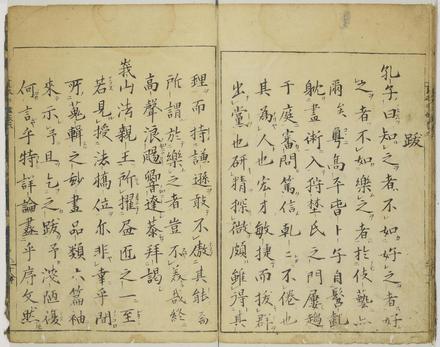 跋
孔子曰知之者不如好之者好
之者不如樂之者於伎藝亦
爾矣粤鳥平 自髫齓
躭畫術入狩埜氏之門屢趨
于庭審問篤信乾〻不倦也
其為人也宏才敏捷而拔群
出黨也研精探微頗雖得其
理而持謙遜敢不傲其能
所謂於樂之者豈不美哉終
高聲浪颺響逢 拜謁
峩山法親王所擢畵匠之一至
若見授法橋位尓非幸乎間
所蒐輯之妙畫品類六篇袖
來示予且乞之跋予淺陋復
何言乎特詳論盡乎序文然